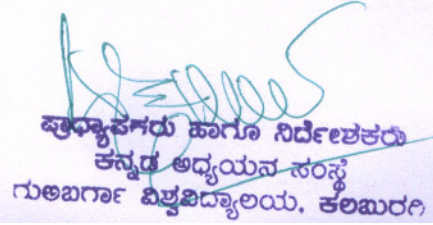 ಪ್ರಾಧ್ಯಾಪಕರು ಹಾಗೂ ನಿರ್ದೇಶಕರು
ಕನ್ನಡ ಅಧ್ಯಯನ ಸಂಸ್ಥೆ
ಗುಲಬರ್ಗಾ ವಿಶ್ವವಿದ್ಯಾಲಯ, ಕಲಬುರಗಿ